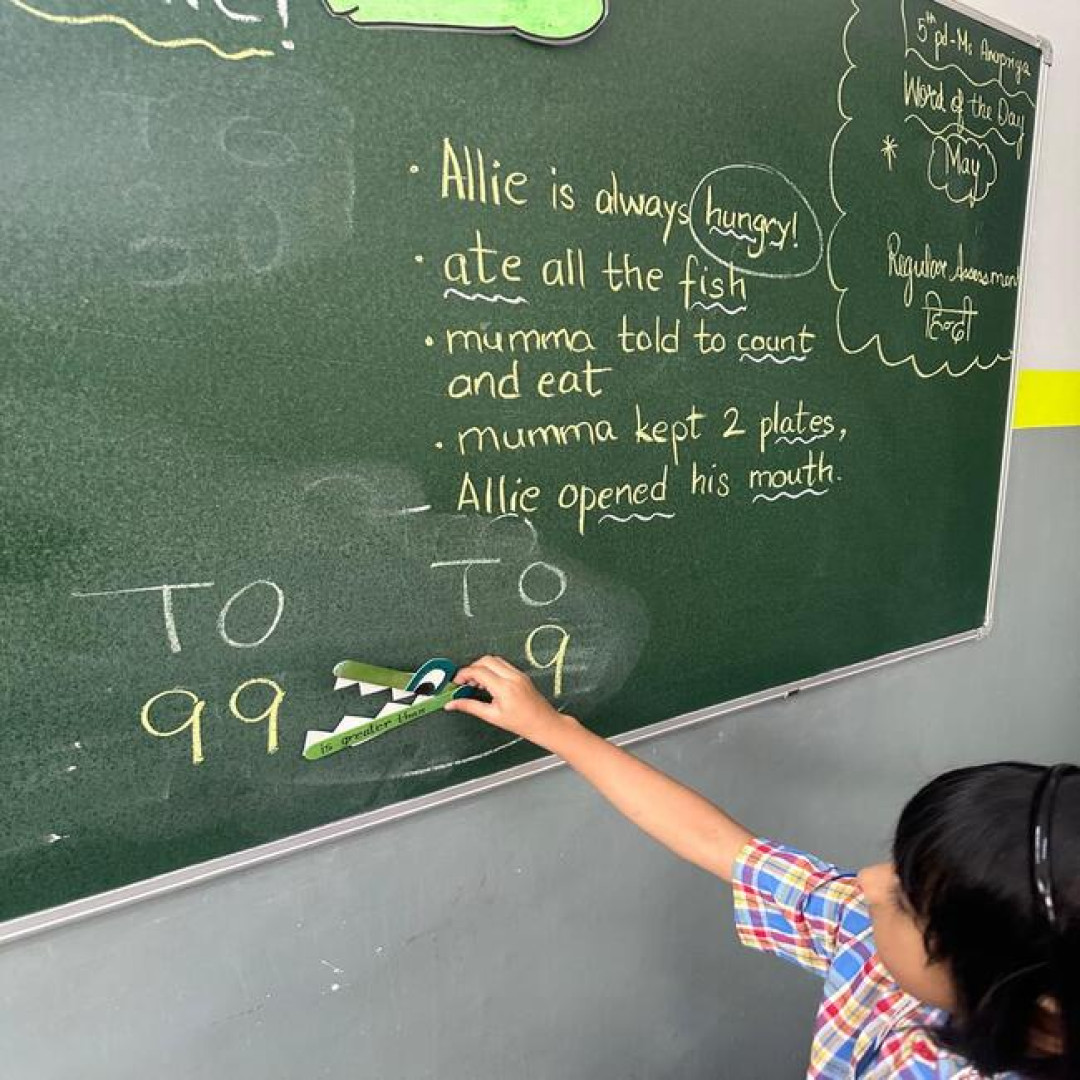 5th pd-Ms Anupriya
Word of the Day
May
Regular Assessment
हिन्दी
• Allie is always hungry!
• ate all the fish
• mumma told to count
and eat
• mumma kept 2 plates,
Allie opened his mouth.
TO
TO
99
9
is greater than